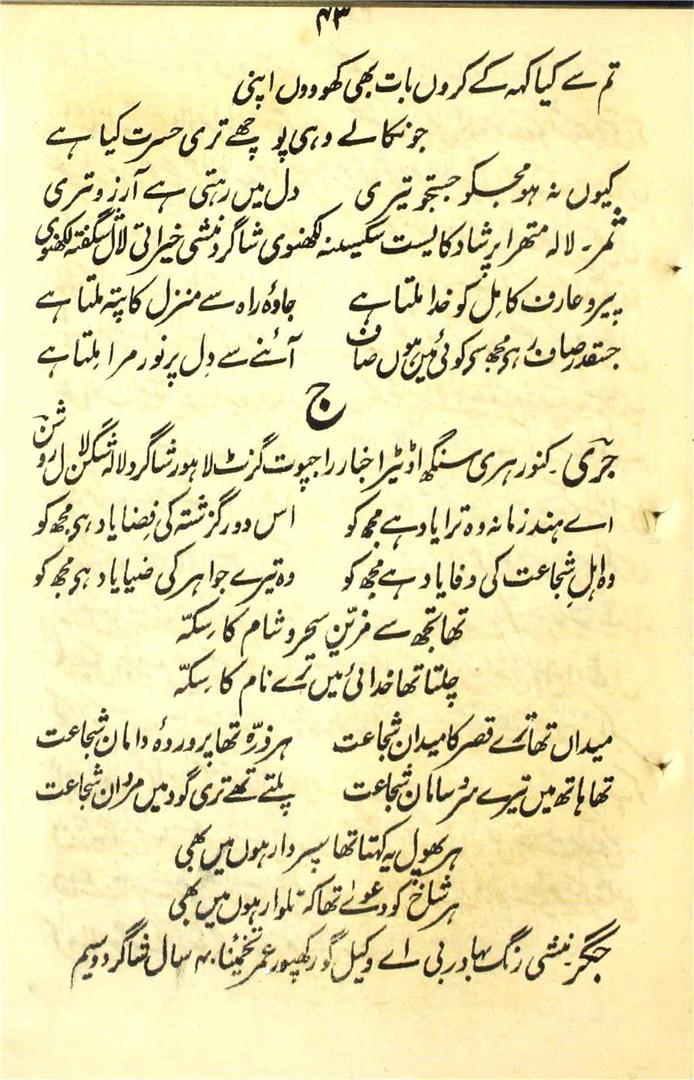 ۴۳
تم سے کیا کہہ کے کروں بات بھی کھوؤں اپنی
جو نکالے وہی پوچھے تری حسرت کیا ہے
کیوں نہ ہو مجکو جستجو تیری دل میں رہتی ہے آرزو تری
ثمر۔ لالہ متھرا پرشاد کایست سکسینہ لکھنوی شاگرد منشی خیراتی لال شگفتہ لکھنوی
پیرو عارف کامل کو خدا ملتا ہے جادۂ راہ سے منزل کا پتہ ملتا ہے
جسقدر صاف رہی مجھ سی کوئی میں ہوں صاف آئنے سے دل پر نور مرا ملتا ہے
ج
جری۔ کنور ہری سنگھ اڈیٹر اخبار راجپوت گزٹ لاہور شاگرد لالہ شنکر لال روشن
اے ہند زمانہ وہ ترا یاد ہے مجھ کو اس دور گزشتہ کی فضا یاد ہی مجھ کو
وہ اہل شجاعت کی وفا یاد ہے مجھ کو وہ تیرے جواہر کی ضیا یاد ہی مجھ کو
تھا تجھ سے مزین سحر و شام کا سکّہ
چلتا تھا خدائی میں ترے نام کا سکّہ
میداں تھا ترے قصر کا میدان شجاعت ہر ذرّہ تھا پروردۂ دامان شجاعت
تھا ہاتھ میں تیرے سر و سامان شجاعت پلتے تھے تری گود میں مردان شجاعت
ہر پھول یہ کہتا تھا سپردار ہوں میں بھی
ہر شاخ کو دعوےٰ تھا کہ تلوار ہوں میں بھی
جگر۔ منشی رنگ بہادر بی اے وکیل گورکھپور عمر تخمیناً ۴۰ سال شاگرد وسیم